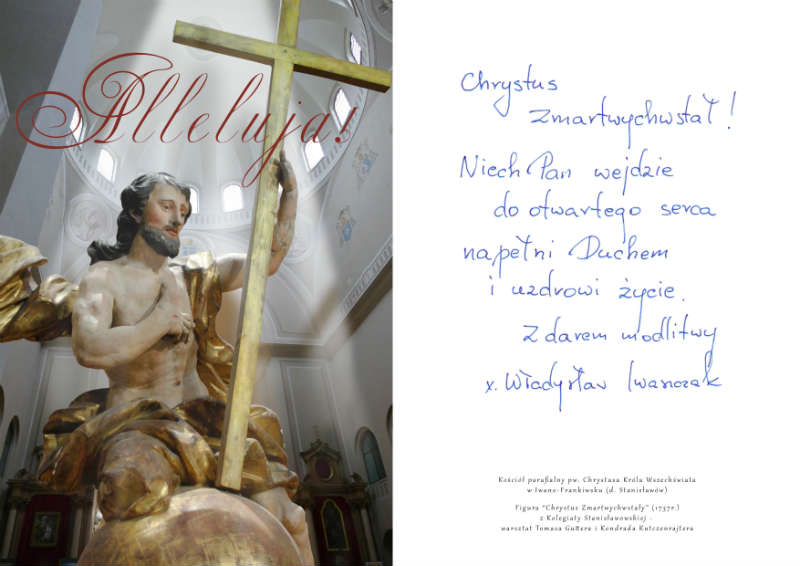 Alleluja!
Chrystus
Zmartwychwstał!
Niech Pan wejdzie
do otwartego serca
napełni Duchem
i uzdrowi życie.
Z darem modlitwy
x. Władysław Iwanczak
Kościół parafialny pw. Chrystusa Króla Wszechświata
w Iwano-Frankiwsku (d. Stanisławów)
Figura "Chrystus Zmartwychwstały" (1737r.)
z Kolegiaty Stanisławowskiej -
warsztat Tomasa Guttera i Kondrada Kutczenrajtera